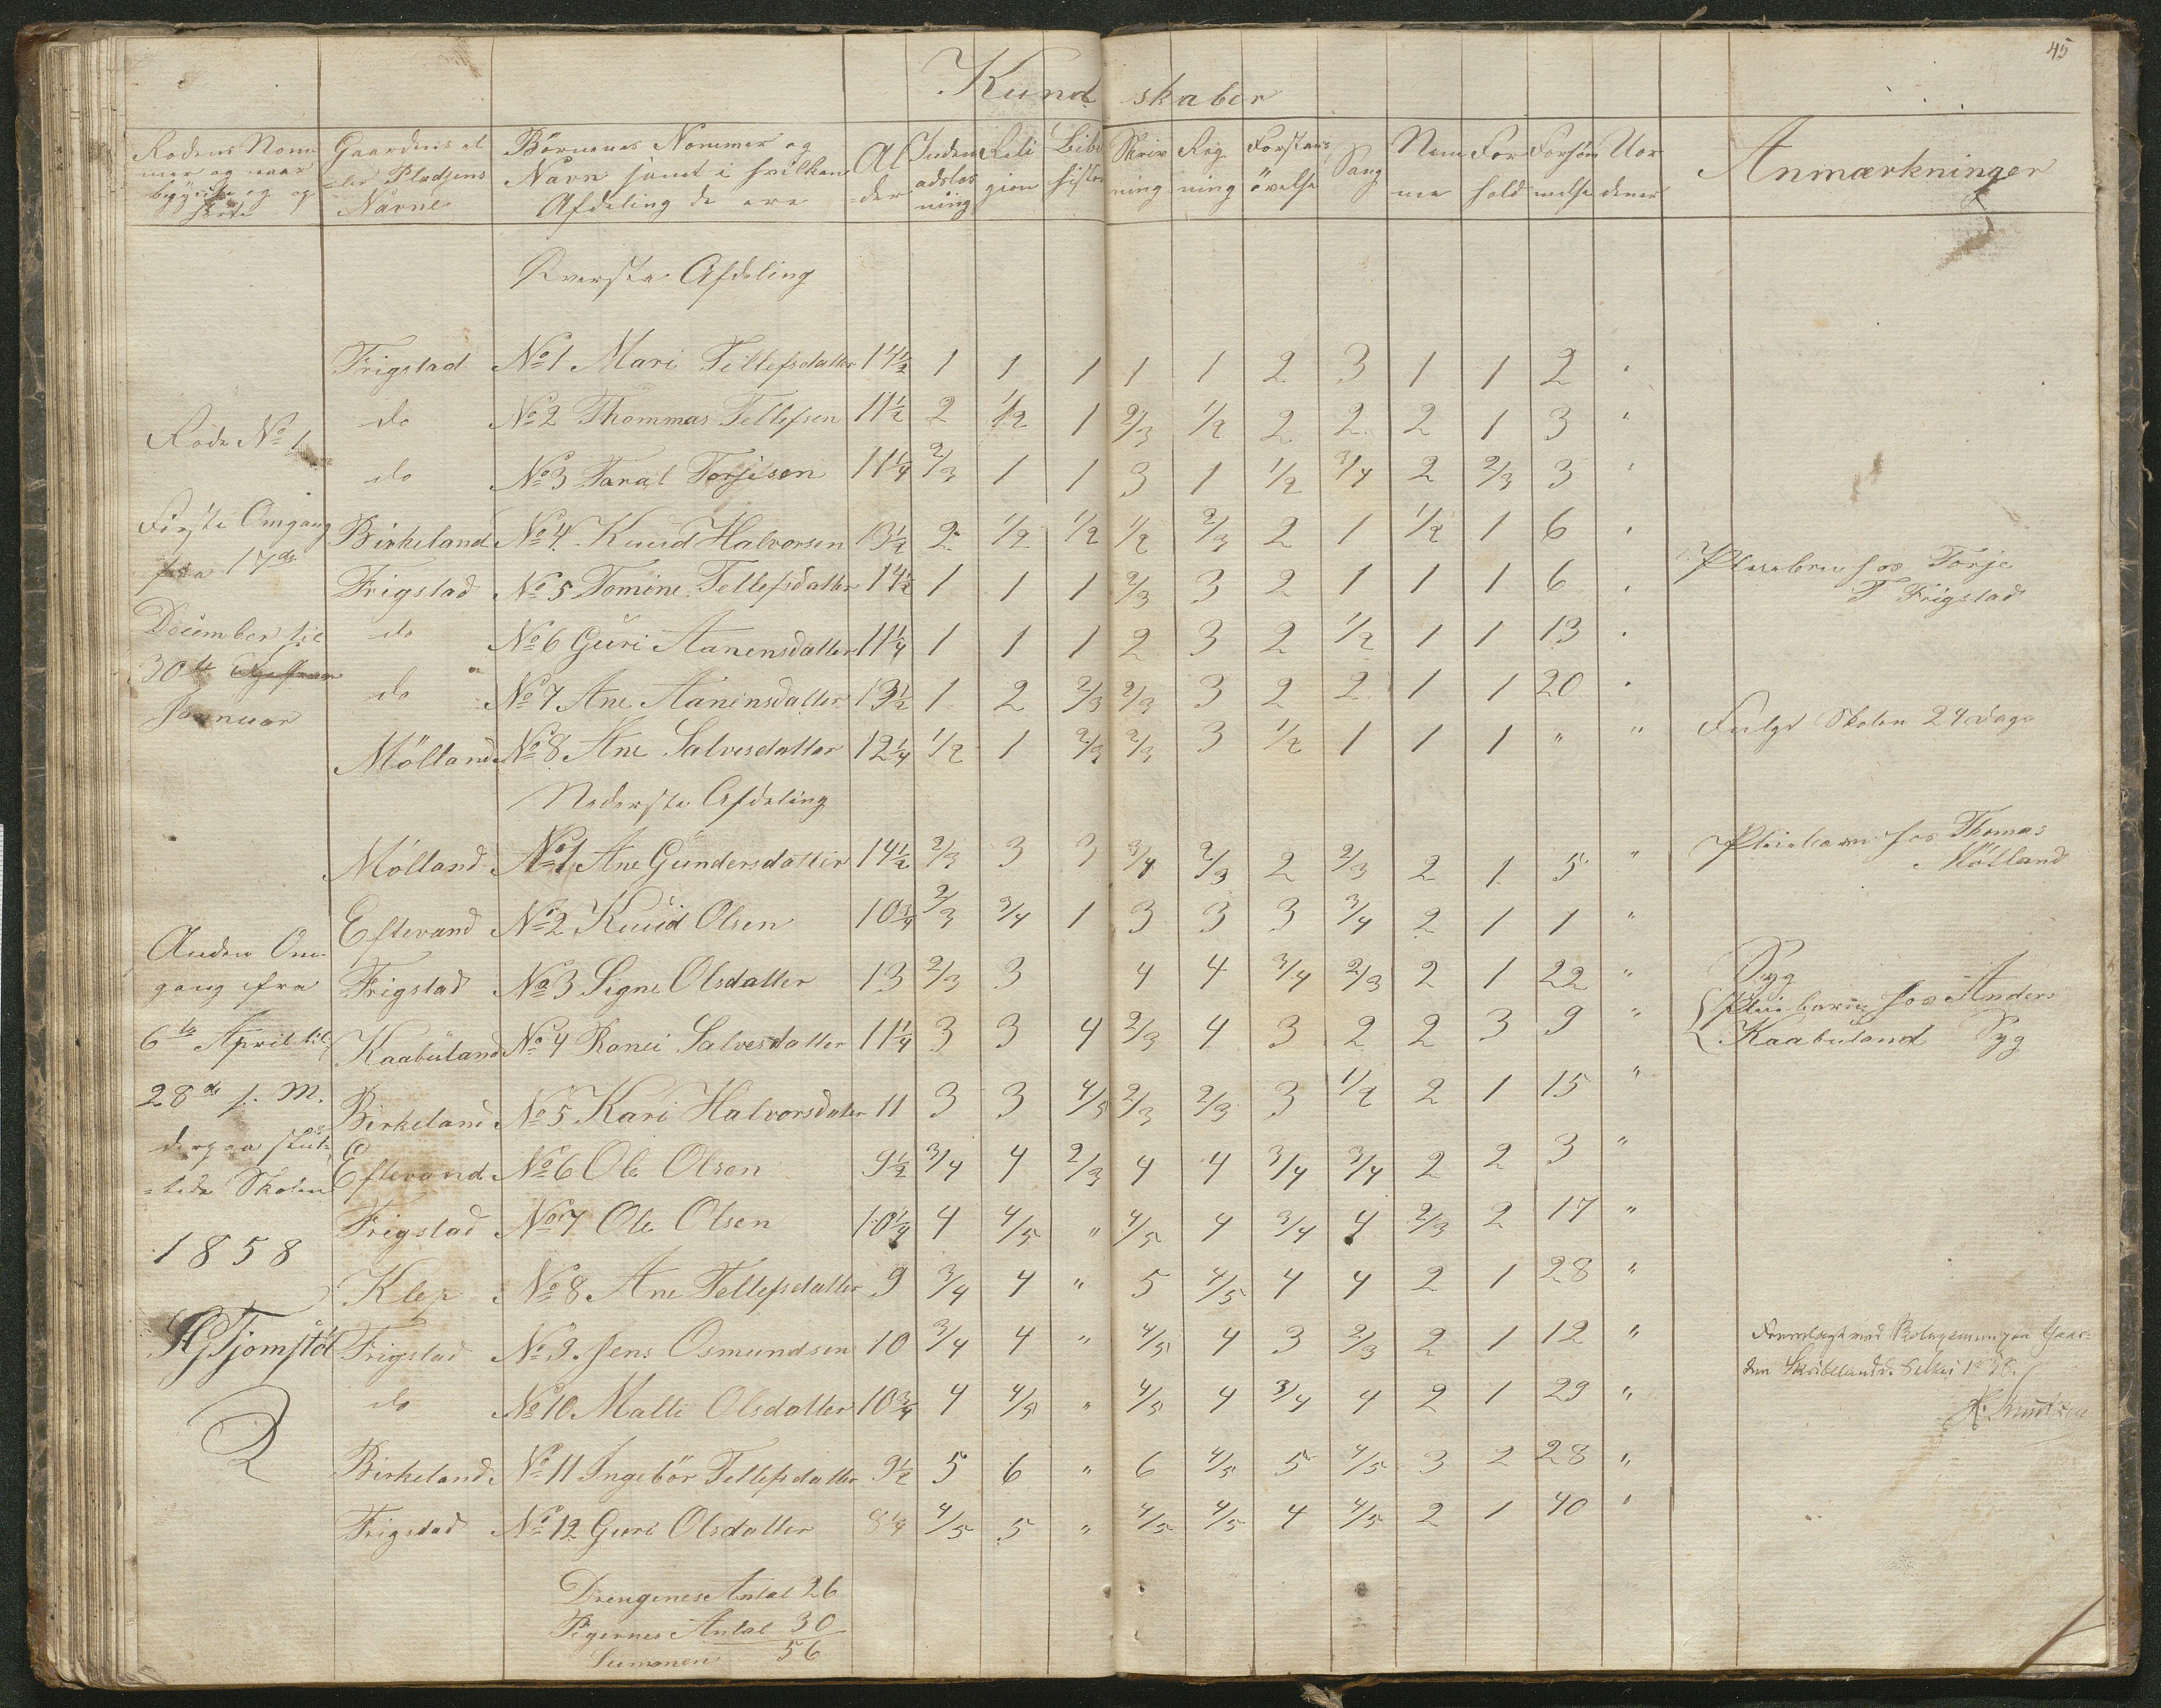 45
Kund skaber
Rodens Nom Gaardens el Børnenes Nommer og Al Inden Reli Bibl Skriv Reg Forstans Sang Nem For Forsøm Uor Anmærkninger
mer og naar =ler Pladsens Navn samt i hvilken =der adslæs gion histor ning ning øvelse me hold melse dener
begyndte og op Navne Afdeling de ere ning
hørte
Øverste Afdeling
Frigstad No 1 Mari Tellefsdatter 14½ 1 1 1 1 1 2 3 1 1 2 "
do No 2 Thommas Tellefsen 11½ 2 1/2 1 2/3 1/2 2 2 2 1 3 "
Rode No 1
do No 3 Taral Torjisen 11¼ 2/3 1 1 3 1 1/2 3/4 2 2/3 3 "
Første Omgang Birkeland No 4 Knud Halvorsen 13½ 2 1/2 1/2 1/2 2/3 2 1 1/2 1 6 "
fra 17de Frigstad No 5 Tomine Tellefsdatter 14½ 1 1 1 2/3 3 2 1 1 1 6 " Pleiebarn hos Torje
T Frigstad
December til do No 6 Guri Aanensdatter 11¼ 1 1 1 2 3 2 1/2 1 1 13 "
30te
do No 7 Ane Aanensdatter 13½ 1 2 2/3 2/3 3 2 2 1 1 20 "
Januar Mölland No 8 Ane Salvesdatter 12¼ 1/2 1 2/3 2/3 3 1/2 1 1 1 " " Fulgt Skolen 24 Dage
Nederste Afdeling
Mölland No 1 Ane Gundersdatter 14½ 2/3 3 3 3/4 2/3 2 2/3 2 1 5 " Pleiebarn hos Thomas
Mölland
Eftevand No 2 Knud Olsen 10¾ 2/3 3/4 1 3 3 3 3/4 2 1 1 "
Anden Om
gang fra Frigstad No 3 Signe Olsdatter 13 2/3 3 4 4 3/4 2/3 2 1 22 " Syg
6te April til Kaabuland No 4 Ronei Salvesdatter 11¼ 3 3 4 2/3 4 3 2 2 3 9 " Pleiebarn hos Anders
Kaabuland Syg
28de s. M. Birkeland No 5 Kari Halvorsdatter 11 3 3 4/5 2/3 2/3 3 1/2 2 1 15 "
derpaa slut=
=tede Skolen Eftevand No 6 Ole Olsen 9½ 3/4 4 2/3 4 4 3/4 3/4 2 2 3 "
Frigstad No 7 Ole Olsen 10¼ 4 4/5 " 4/5 4 3/4 4 2/3 2 17 "
1858
Klep No 8 Ane Tellefsdatter 9 3/4 4 " 5 4/5 4 4 2 1 28 "
Tjomstøl Frigstad No 9 Jens Osmundsen 10 3/4 4 " 4/5 4 3 2/3 2 1 12 " Fremlagt ved paa Gaar=
den Skibeland
do No 10 Malli Olsdatter 10¾ 4 4/5 " 4/5 4 3/4 4 2 1 29 "
Birkeland No 11 Ingebör Tellefsdatter 9½ 5 6 " 6 4/5 5 4/5 3 2 28 "
Frigstad No 12 Guri Olsdatter 8¼ 4/5 5 " 4/5 4/5 4 4/5 2 1 40 "
Drengenes Antal 26
Pigernes Antal 30
Summen 56